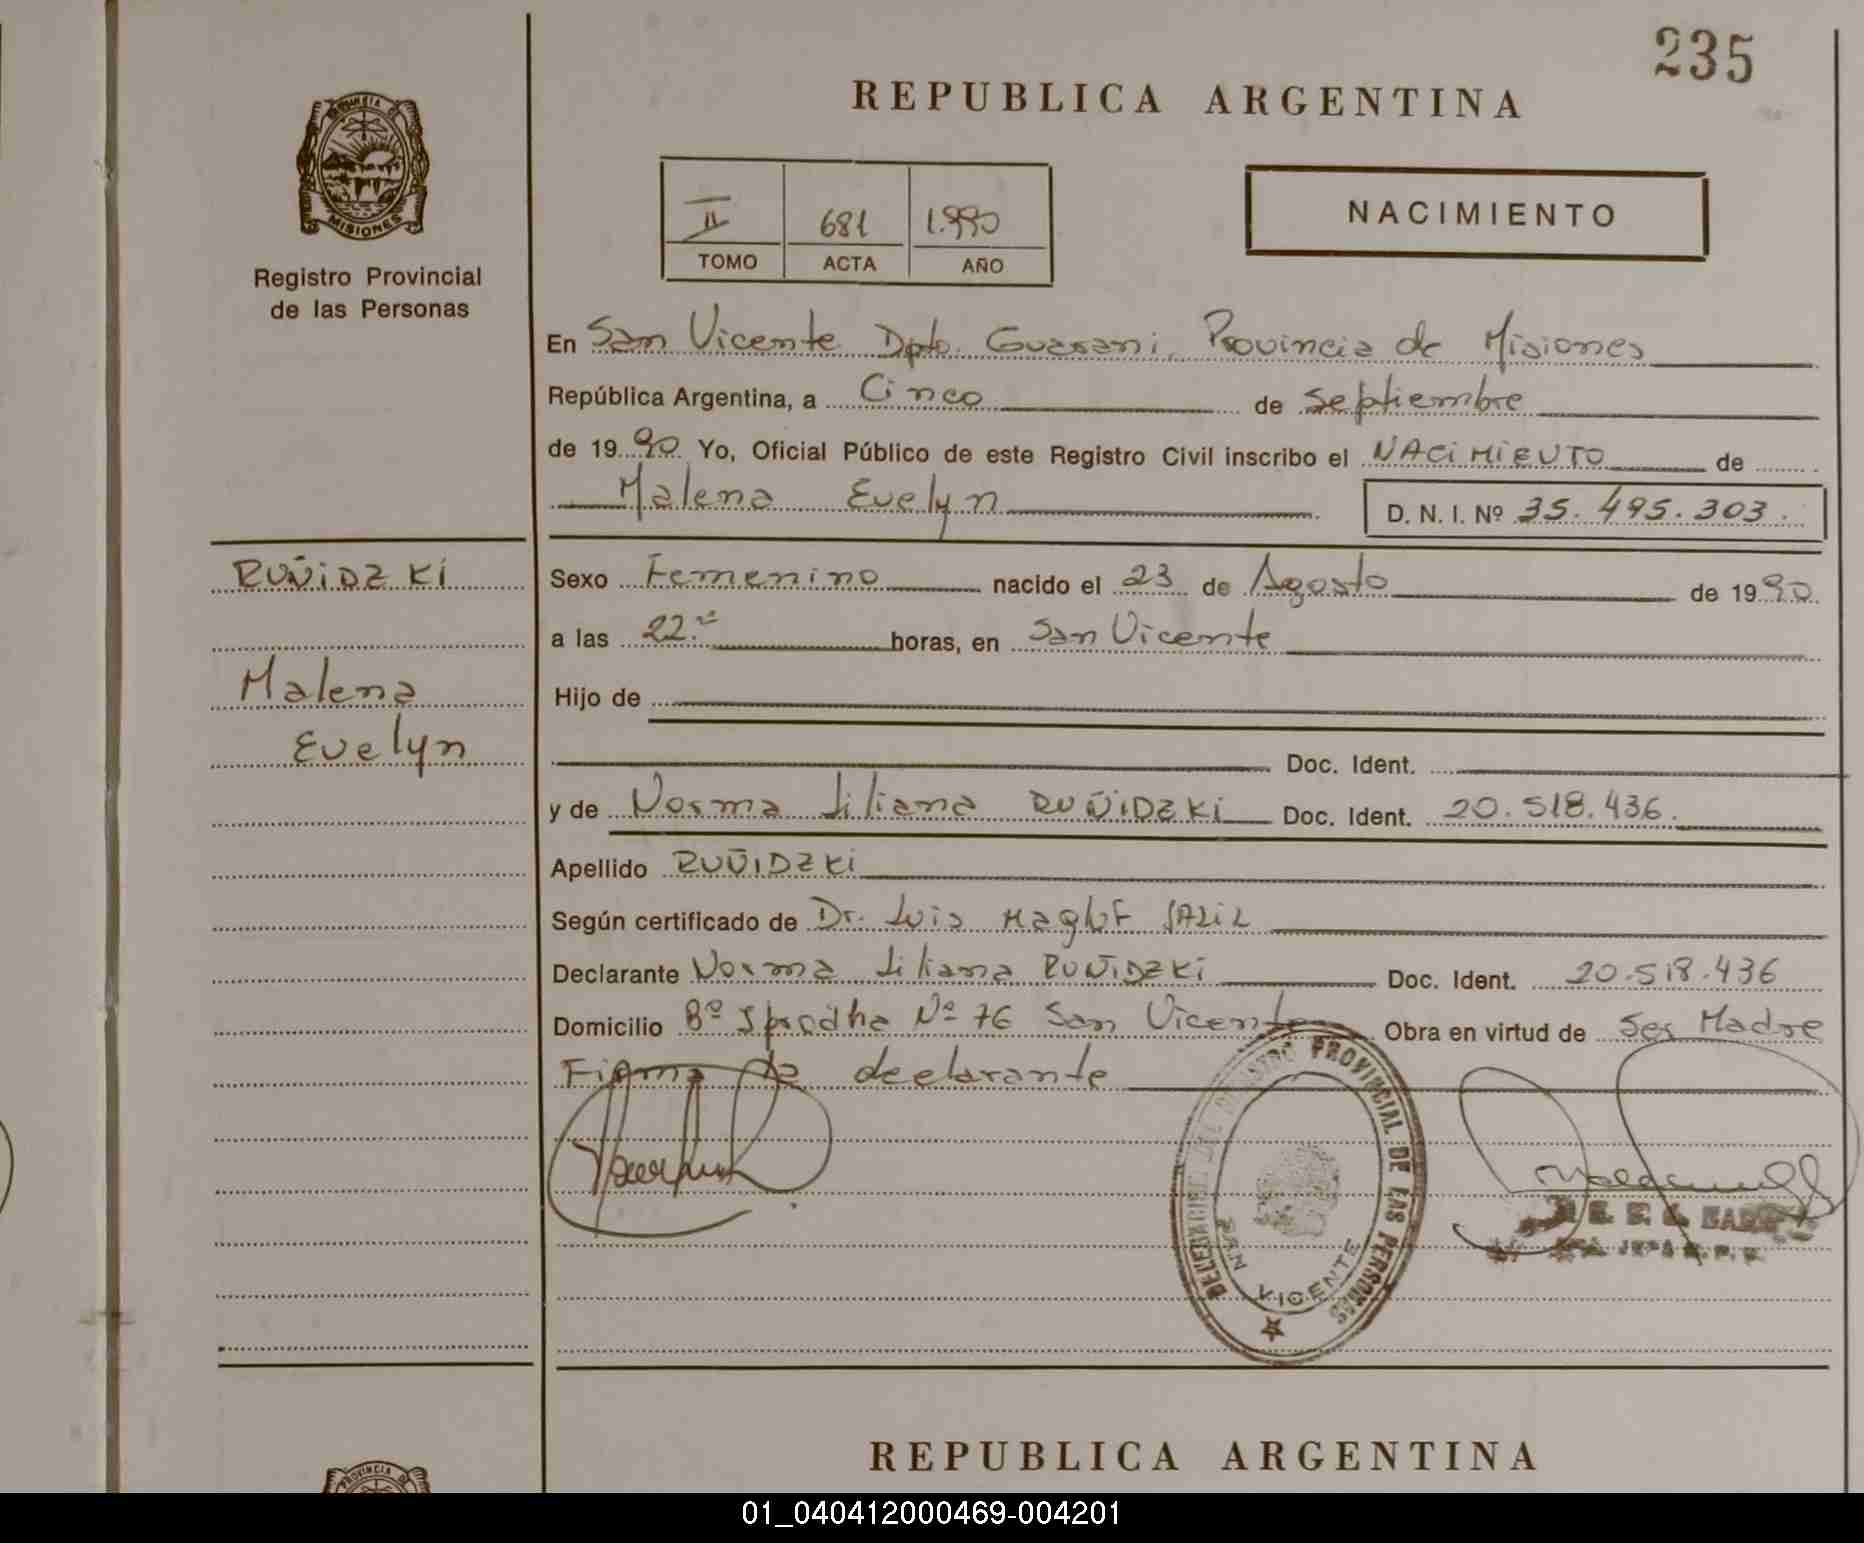 235
REPUBLICA ARGENTINA
PROVINCIA D
MISIONES
Registro Provincial
de las Personas
II 681 1.990
TOMO ACTA AÑO
NACIMIENTO
En San Vicente Dpto. Guarani, Provincia de Misiones
República Argentina, a Cinco de Septiembre
de 1990 Yo, Oficial Público de este Registro Civil inscribo el NACIMIENTO de
Malena Evelyn D. N. I. Nº 35.495.303.
RUÑIDZKI
Malena
Evelyn
Sexo Femenino nacido el 23 de Agosto de 1990.
a las 22. horas, en San Vicente
Hijo de
Doc. Ident.
y de Norma Liliana RUÑIDZKI Doc. Ident. 20.518.436.
Apellido RUÑIDZKI
Según certificado de Dr. Luis
Declarante Norma Liliana RUÑIDZKI Doc. Ident. 20.518.436
Domicilio Bº Nº 76 San Vicente Obra en virtud de Ser Madre
Firma la declarante
DELEGACION DEL REGISTRO PROVINCIAL DE LAS PERSONAS
SAN VICENTE
REPUBLICA ARGENTINA
PROVINCIA D
01_040412000469-004201